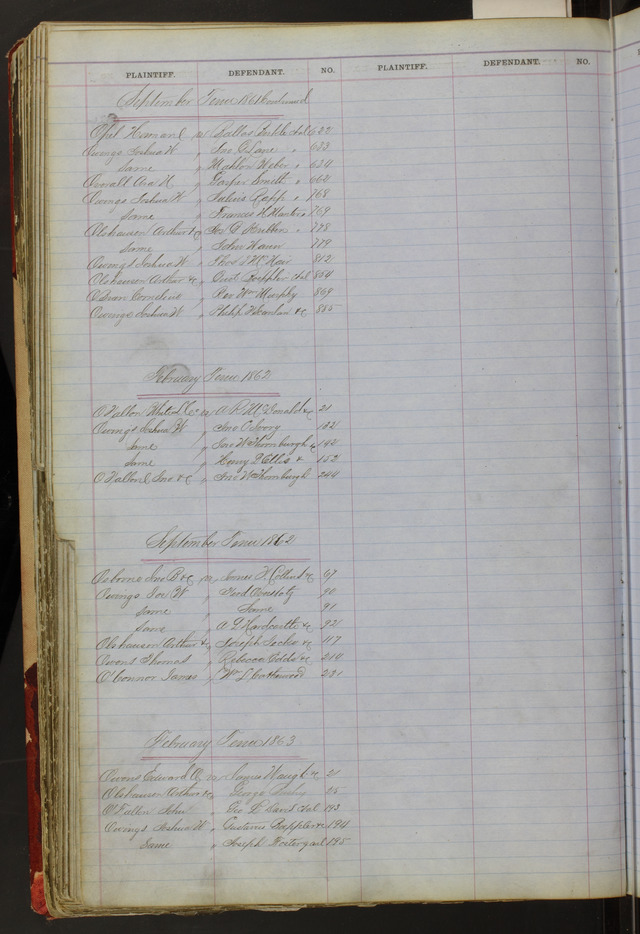 PLAINTIFF. DEFENDANT. NO. PLAINTIFF. DEFENDANT. NO.
September Term 1861 Continued
Opel Herman vs Dallas 622
Owings Joshua W " Jno C Lane " 633
Same " Mahlon Weber " 634
Overall Asa N " Casper Smith " 662
Owings Joshua W " Julius Rapp " 768
Same " Francis H 769
Olshausen Arthur &c " Jos A 778
Same " John Wann 779
Owings Joshua W " Thos J McNair 812
Olshausen Arthur &c " Gust Poeppler &al 854
OBrian Cornelius " Rev Wm Murphy 869
Owings Joshua W " Philip H Scanlan &c 885
February Term 1862
O'Fallon &c vs A R McDonald &c 21
Owings Joshua W " Jno C Ivory 132
Same " Jno W Thornburgh &c 142
Same " Henry P Ellis & 152
O'Fallon Jno &c " Jno W Thornburgh 244
September Term 1862
Osborne Jno B &c vs James F Collins &c 67
Owings Jos W " Ferd 90
Same " Same 91
Same " A L Hardcastle &c 921
Olshausen Arthur &c " Joseph &c 117
Owens Thomas " Rebecca &c 214
O'Connor James " Wm L Catherwood 221
February Term 1863
Owens Edward O vs James Waugh &c 21
Olshausen Arthur &c " George 25
O'Fallon John " Geo L &al 193
Owings Joshua W " Gustavus Poeppler &c 194
Same " Joseph 195